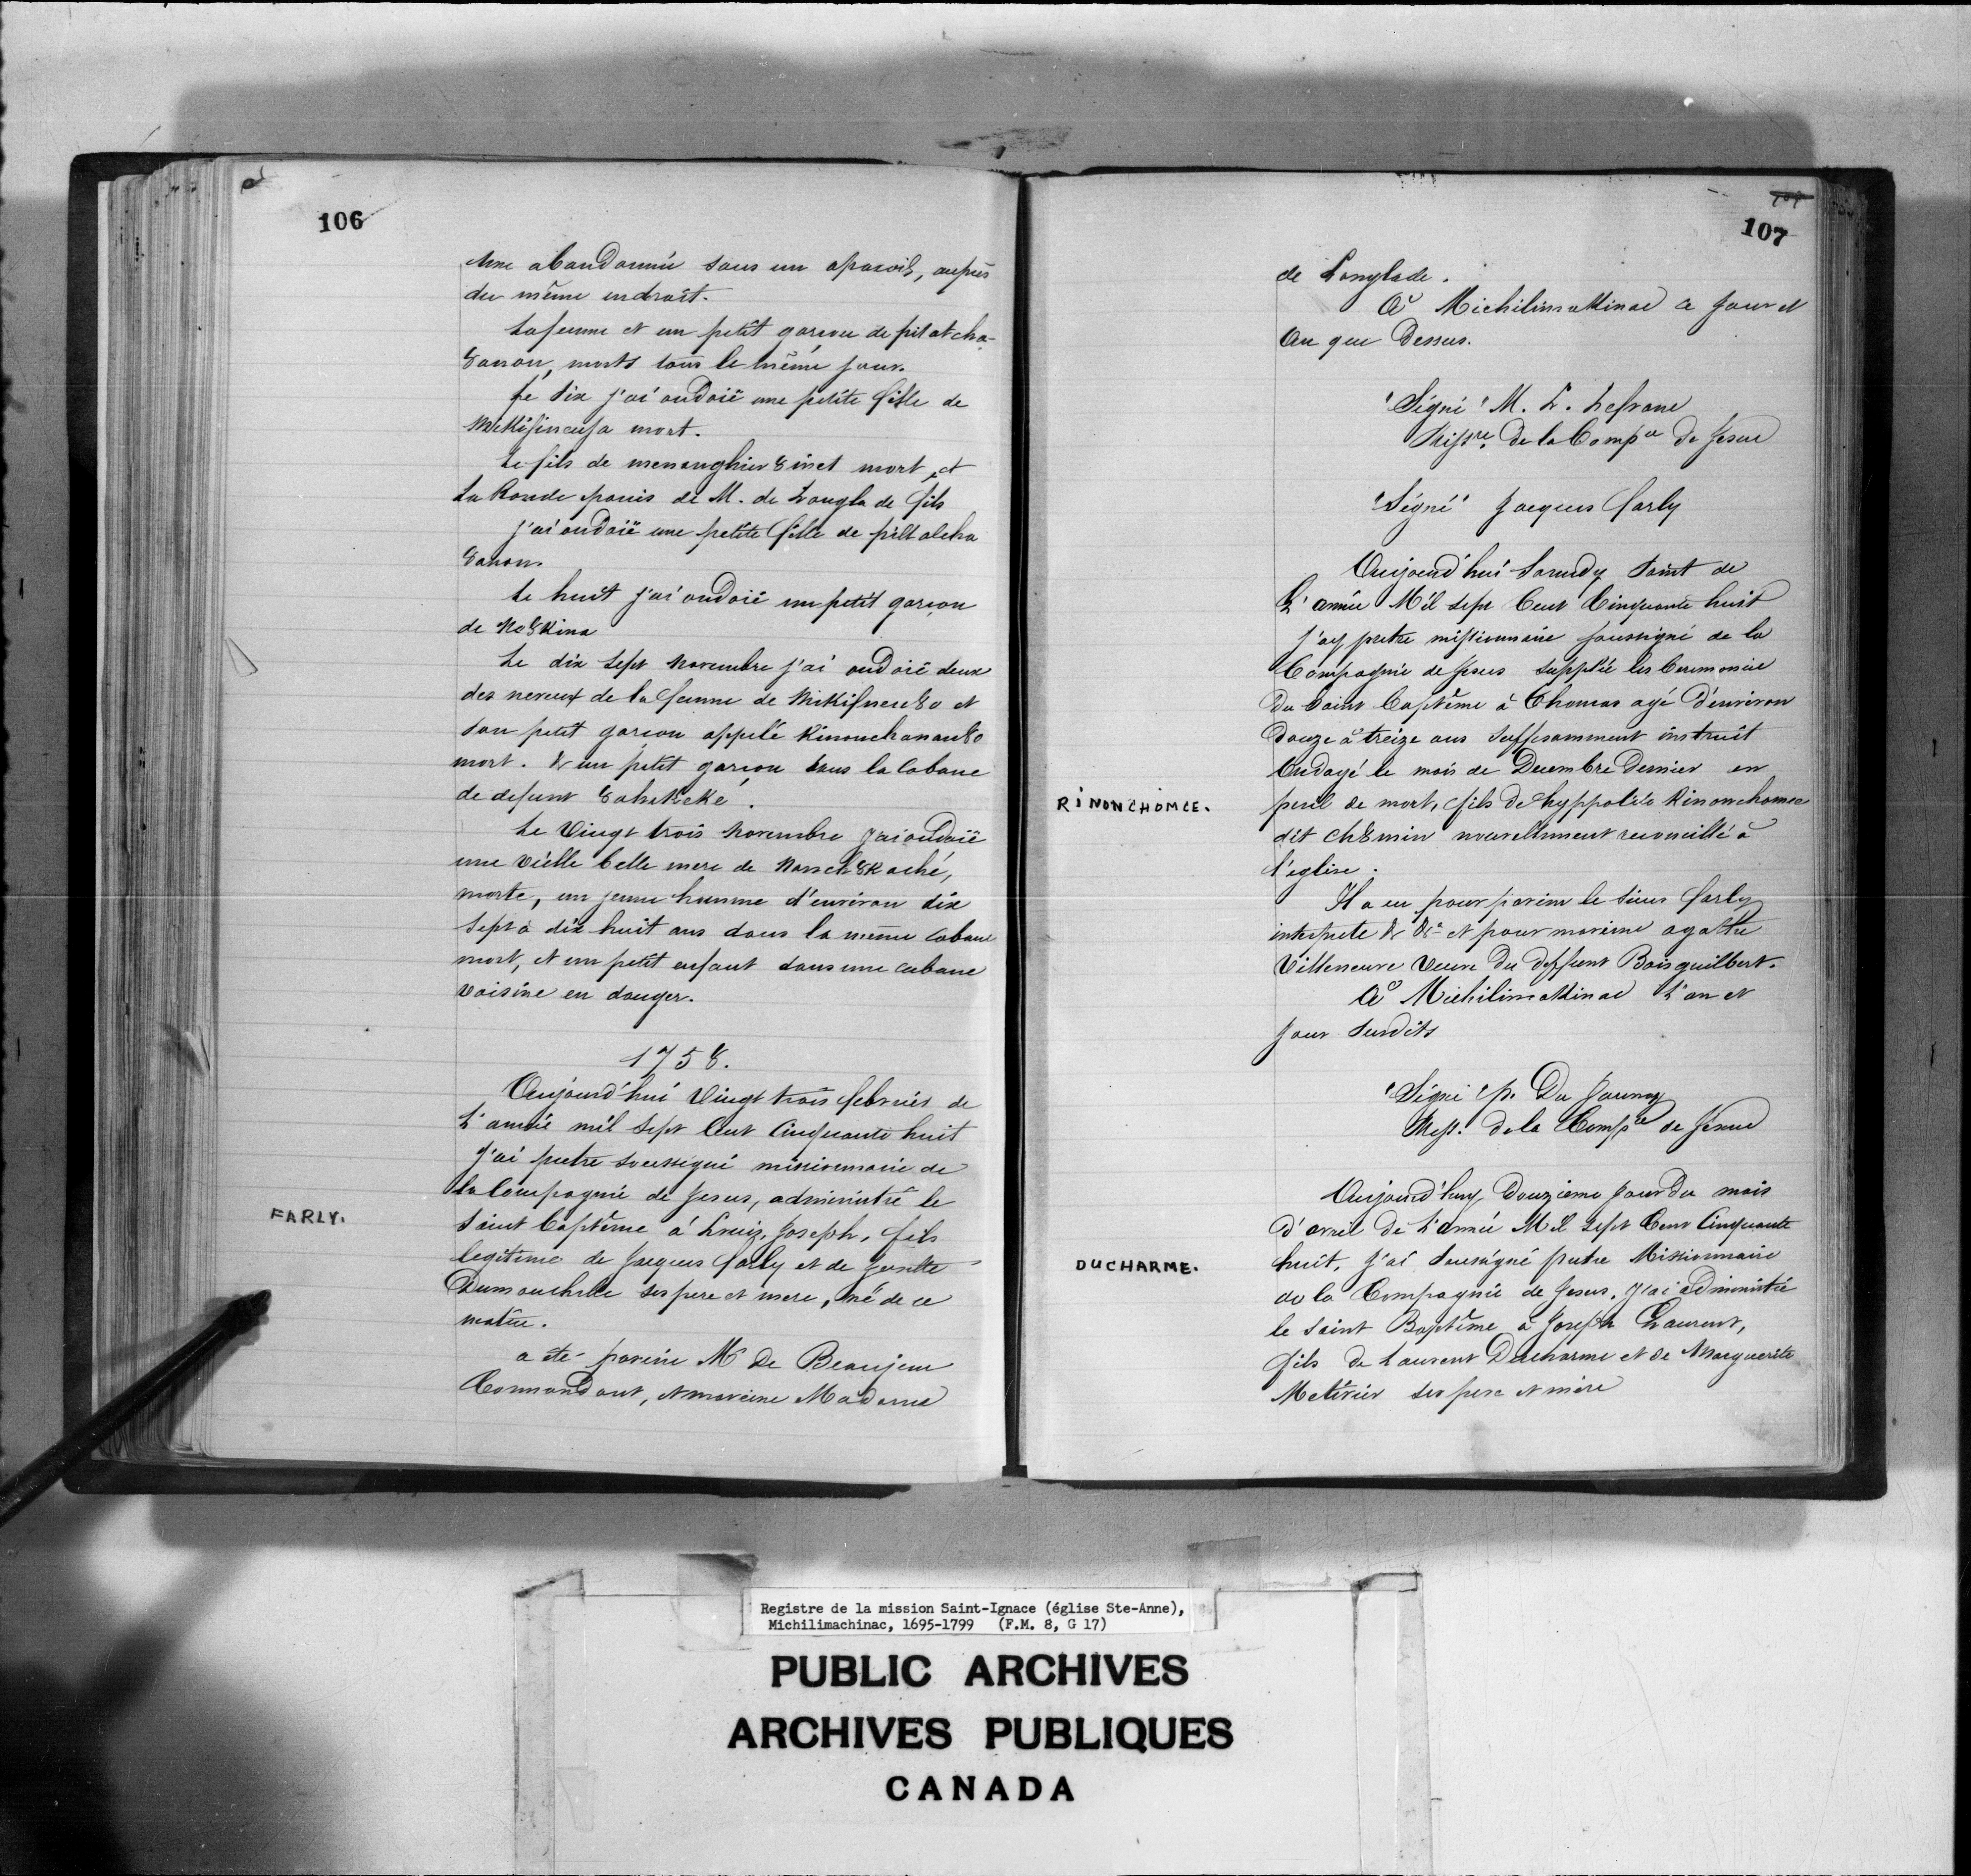 106
une abandonnée sous un apacois, auprès
du même endroit.
La femme et un petit garcon de pitatcha-
8anon, morts tous le même jour.
Le dix j'ai ondoié une petite fille de
mort.
Le fils de mort, et
La Ronde panis de M. de Langlade fils
j'ai ondoié une petite fille de pilt alcha
8anon.
Le huit j'ai ondoié un petit garcon
de No8Kina
Le dix sept Novembre j'ai ondoié deux
des neveux de la femme de et
son petit garcon appelé Kinonchanan8o
mort. & un petit garcon dans la Cabane
de defunt
Le Vingt trois Novembre j'ai ondoié
une vieille belle mere de
morte, un jeune homme d'environ dix
sept à dix huit ans dans la même Cabane
mort, et un petit enfant dans une cabane
voisine en danger.
1758.
Aujourd'hui Vingt trois febrier de
L'année mil sept Cent Cinquante huit
J'ai pretre soussigné missionnaire de
la Compagnie de Jesus, administré le
FARLY.
saint Baptême à Louis Joseph, fils
legitime de Jacques farly et de Josette
Dumouchelle ses pere et mere, né de ce
matin.
a été parein Mr De Beaujeu
Commandant, et mareine Madame
107
de Langlade.
A Michilimakinac ce Jour et
An que Dessus.
"Signé" M. L. Lefranc
Missre. De la Compie De Jesus
"Signé" Jacques farly
Aujourd'hui Samedy Saint de
L'année Mil sept Cent Cinquante huit
j'ay pretre missionnaire soussigné de la
Compagnie de Jesus supplié les Ceremonies
Du Saint Baptême à Thomas agé D'environ
Douze à treize ans suffisamment instruit
Ondoyé le mois de Decembre Dernier en
RINONCHOMEE.
peril de mort, fils De hyppolite Rinonchamee
dit Ch8min nouvellement reconcilié à
l'eglise.
Il a eu pour parein le sieur farly
interprete & &a et pour mareine agathe
Villeneuve Veuve Du deffunt Boisguilbert.
A Michilimakinac L'an et
Jour Susdits
"Signé" p. Du Jaunay
Miss. de la Compie de Jesus
Aujourd'huy Douzieme Jour Du mois
D'avril de L'année Mil sept Cent Cinquante
DUCHARME.
huit, J'ai soussigné pretre Missionnaire
de la Compagnie de Jesus, J'ai administré
le saint Baptême à Joseph Laurent,
fils de Laurent Ducharme et de Marguerite
Metivier ses pere et mère
Registre de la mission Saint-Ignace (église Ste-Anne),
Michilimachinac, 1695-1799 (F.M. 8, G 17)
PUBLIC ARCHIVES
ARCHIVES PUBLIQUES
CANADA